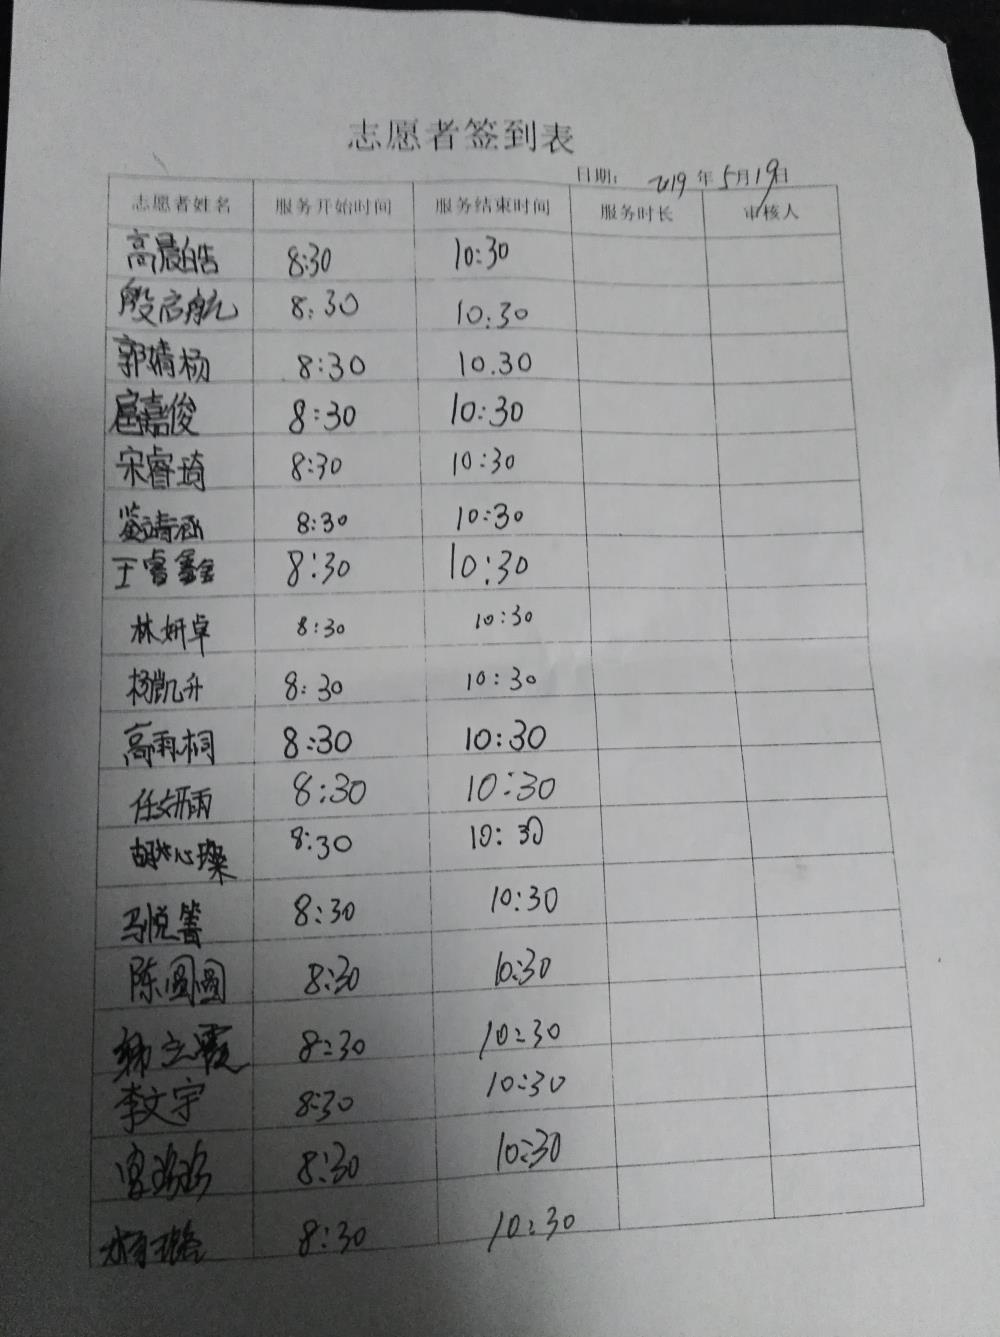 志愿者签到表
日期： 2019 年 5月19日
志愿者姓名 服务开始时间 服务结束时间 服务时长 审核人
高晨皓 8:30 10:30
殷启航 8:30 10:30
郭婧杨 8:30 10.30
扈嘉俊 8:30 10:30
宋睿琦 8:30 10:30
8:30 10:30
王睿鑫 8:30 10:30
林妍卓 8:30 10:30
杨凯升 8:30 10:30
高雨桐 8:30 10:30
任妍雨 8:30 10:30
胡心璨 8:30 10:30
马悦箐 8:30 10:30
陈圆圆 8:30 10:30
立霞 8:30 10:30
李文宇 8:30 10:30
8:30 10:30
8:30 10:30